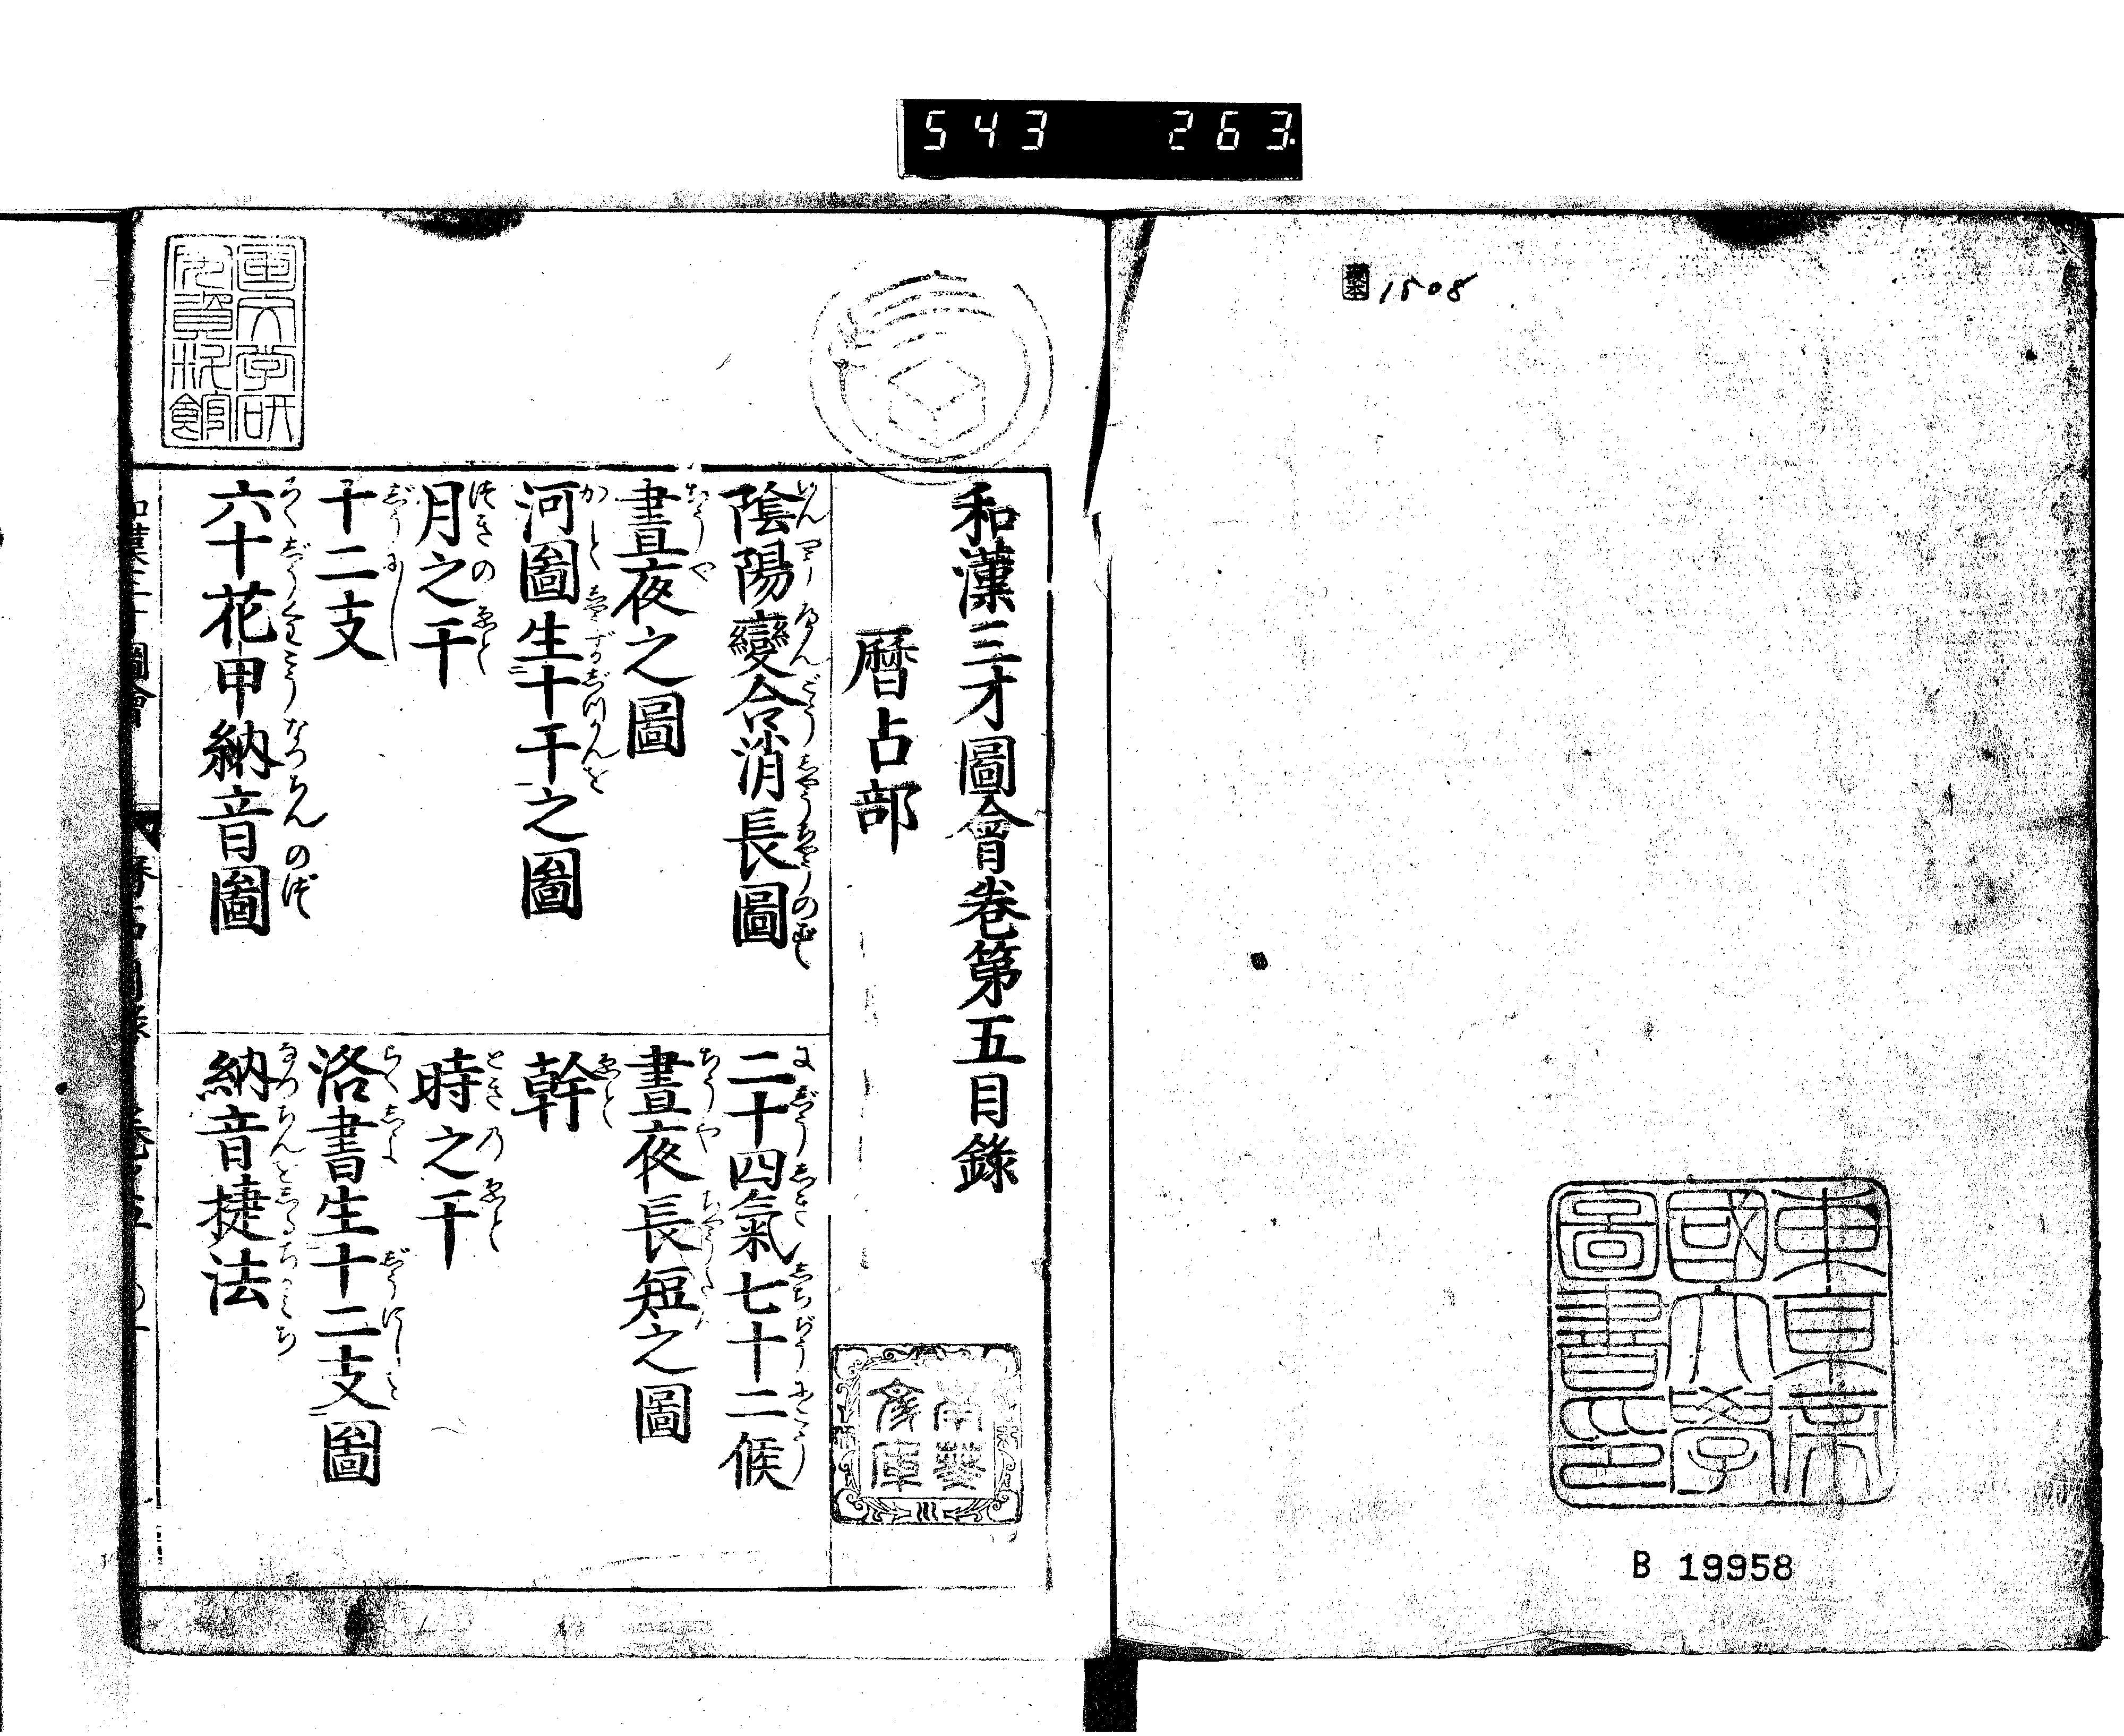 543 263
1508
東京帝
國大學
圖書印
B 19958
和漢三才圖會卷第五目錄
曆占部
陰陽變合消長圖
二十四氣七十二候
晝夜之圖
晝夜長短之圖
河圖生十干之圖
幹
月之干
時之干
十二支
洛書生十二支圖
六十花甲納音圖
納音捷法
南葵
文庫
国文学研
究資料館